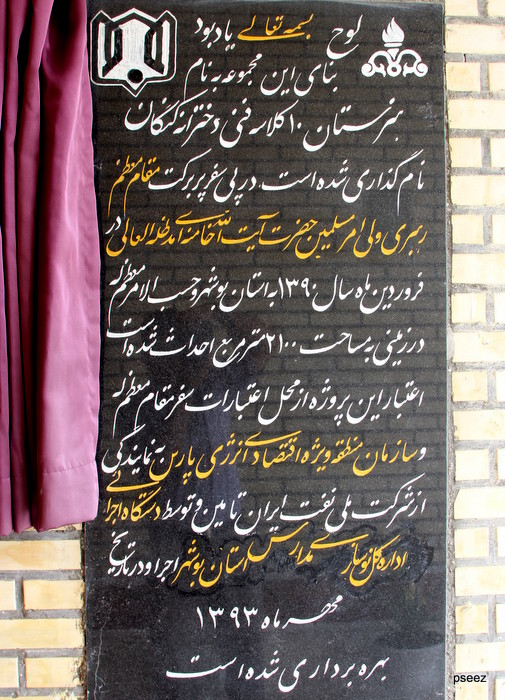 بسمه تعالی
لوح یادبود
بنای این مجموعه به نام
هنرستان ۱۰ کلاسه فنی دخترانه کنگان
نام گذاری شده است. در پی سفر پر برکت مقام معظم
رهبری ولی امر مسلمین حضرت آیت الله خامنه ای مدظله العالی در
فروردین ماه سال ۱۳۹۰ به استان بوشهر و حسب الامر معظم له
در زمینی به مساحت ۲۱۰۰ متر مربع احداث شده است
اعتبار این پروژه از محل اعتبارات سفر مقام معظم له
و سازمان منطقه ویژه اقتصادی انرژی پارس به نمایندگی
از شرکت ملی نفت ایران تامین و توسط دستگاه اجرائی
اداره کل نوسازی مدارس استان بوشهر اجرا و در تاریخ
مهر ماه ۱۳۹۳
بهره برداری شده است
pseez